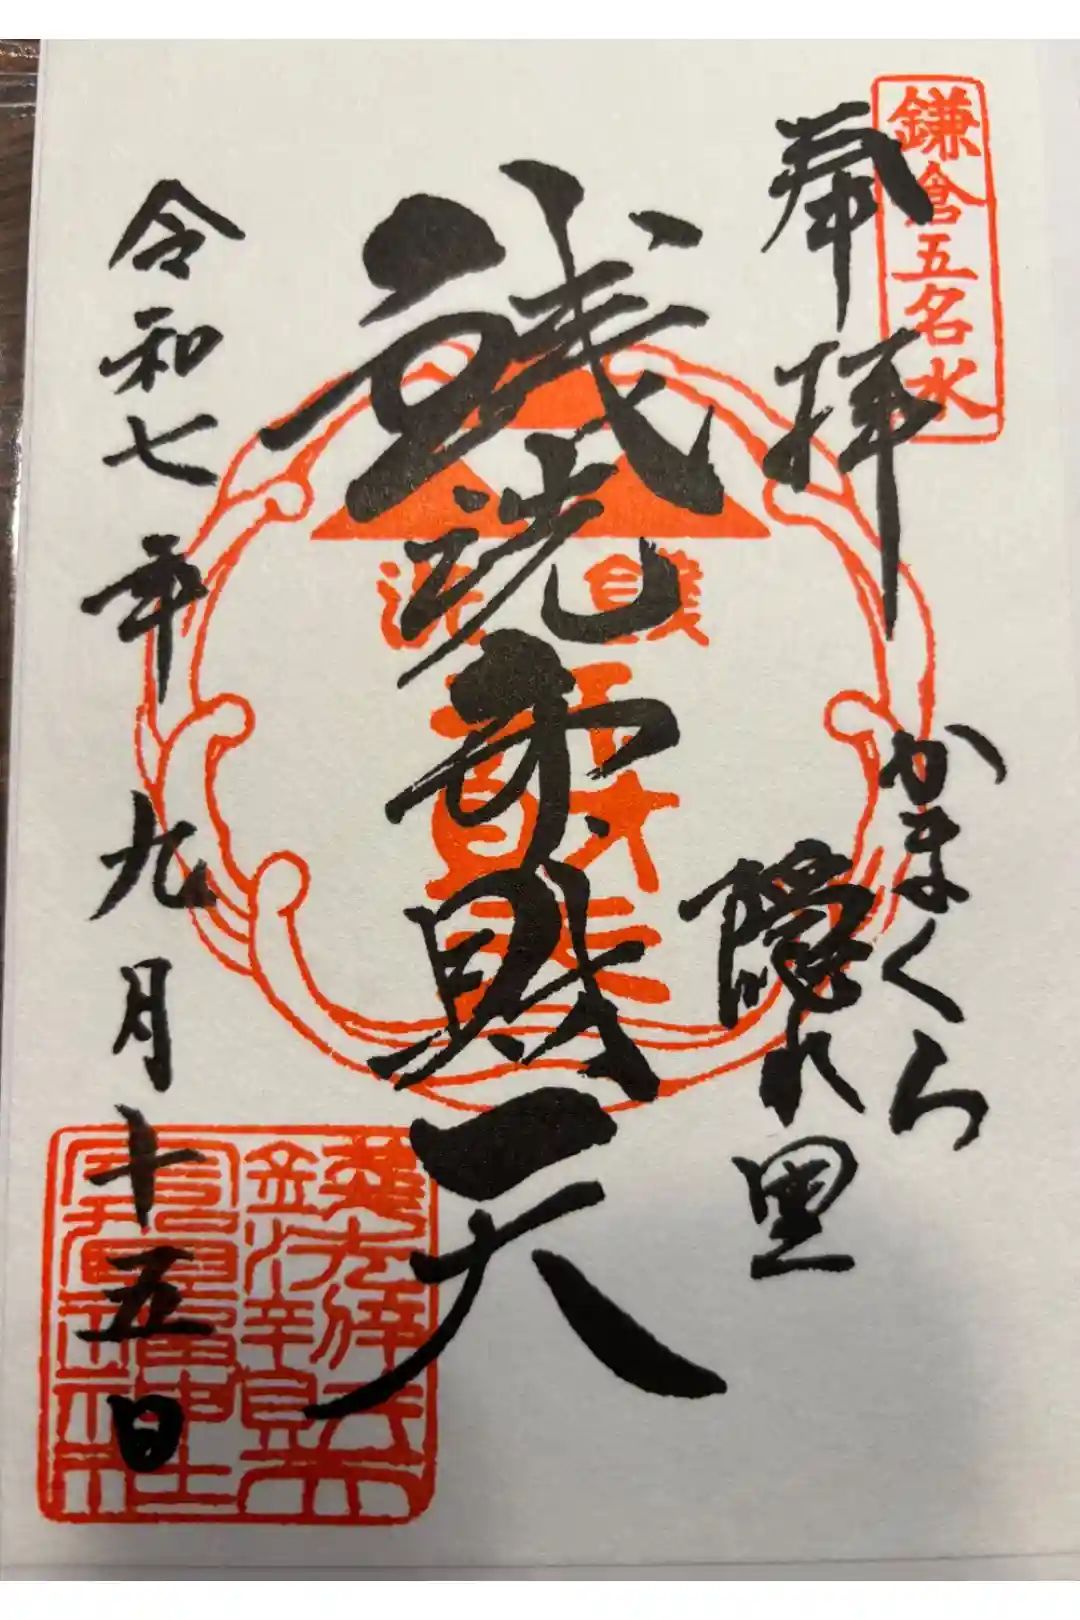 鎌倉五名水
奉拝
かまくら
隠れ里
銭洗弁財天
銭洗
令和七年九月十五日